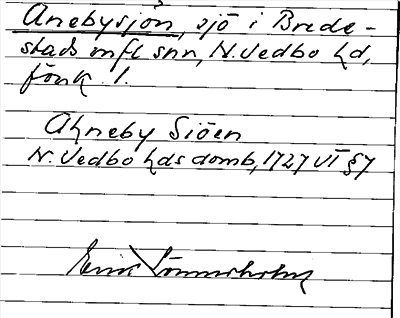 Anebysjön, sjö i Brede-
stads m fl snr, N. Vedbo hd,
Jönk. l.
Ahneby Siöen
N. Vedbo hds domb, 1727 VI §7
Erik